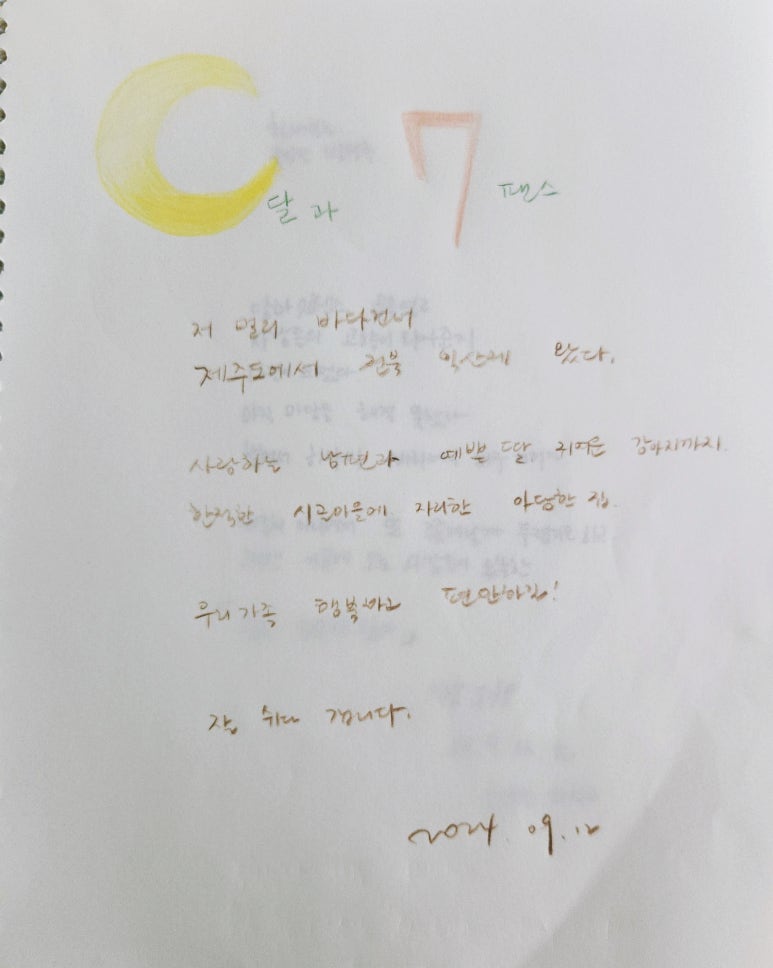 달과 7 펜스
저 멀리 바다건너
제주도에서 전북 익산에 왔다.
사랑하는 남편과 예쁜 딸 귀여운 강아지까지.
한적한 시골마을에 자리한 아담한 집.
우리가족 행복하고 편안하길!
잘 쉬다 갑니다.
2024. 09. 12